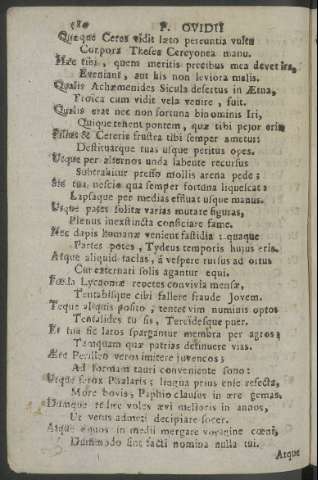 580 P. OVIDII
Quæque Ceres vidit læto pereuntia vultu
Corpora Thesei Cercyonea manu.
Hæc tibi, quem meritis precibus mea devovet ira,
Eveniant, aut his non leviora malis.
Qualis Achæmenides Sicula desertus in Ætna,
Troica cum vidit vela venire, fuit.
Qualis erat nec non fortuna binominis Iri,
Quique tenent pontem, quæ tibi pejor erit.
Filius & Cereris frustra tibi semper ametur:
Destituatque tuas usque peritus opes.
Utque per alternos unda labente recursus
Subtrahitur presso mollis arena pede;
Sic tua nescio qua semper fortuna liquescat:
Lapsaque per medias effluat usque manus.
Utque pater solitæ varias mutare figuras,
Plenus inextincta conficiare fame.
Nec dapis humanæ venient fastidia: quaque
Partes potes, Tydeus temporis hujus eris.
Atque aliquid facias, à vespere rursus ad ortus
Cur externati solis agantur equi.
Fœda Lycaoniæ repetes convivia mensæ,
Tentabisque cibi fallere fraude Jovem.
Teque aliquis posito, tentet vim numinis optes
Tantalides tu sis, Tereidesque puer.
Et tua sic latos spargantur membra per agros;
Tamquam quæ patrias detinuere vias.
Ære Perilleo veros imitere juvencos;
Ad formam tauri conveniente sono:
Utque ferox Phalaris; lingua prius ense resecta,
More bovis, Paphio clausus in ære gemas.
Dumque redire voles ævi melioris in annos,
Ut vetus admeti decipiare socer.
Atque eques in medii mergare voragine cœni,
Dummodo sint facti nomina nulla tui.
Atque